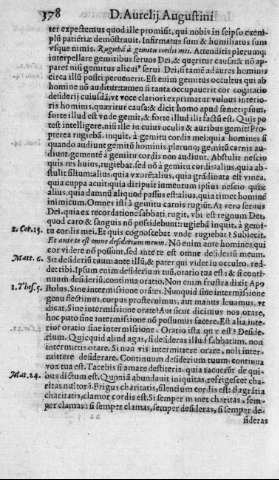 378 D. Aurelij Augustini
ter expectemus quod ille promisit, qui nobis in seipso exem-
plũ patiētiæ demostrauit. Infirmatus sum & humiliatus sum
vsque nimis. Rugiebã à gemitu cordis mei. Attenditis plerunq;
interpellare gemitibus seruos Dei, & quæritur causa: & nõ ap-
paret nisi gemitus alicui' serui Dei, si tamē ad aures hominis
circa illũ positi perueniat. Est enim gemitus occultus qui ab
homine nõ auditur: tamen si tanta occupauerit cor cogitatio
desiderij cuiusdã, vt voce clariori exprimatur vulnus interio-
ris hominis, quæritur causa: & dicit homo apud semetipsum,
forte illud est vnde gemit, & forte illud illi factũ est. Quis po-
test intelligere, nisi ille in cuius oculis & auribus gemit? Pro-
pterea rugiebã, inquit, à gemitu cordis mei: quia homines si
quando audiunt gemitũ hominis, plerunq; gemitũ carnis au-
diunt: gementē à gemitu cordis non audiunt. Abstulit nescio
quis res huius, rugiebat: sed nõ à gemitu cordis: alius, quia ab-
stulit filium, alius quia vxorē: alius, quia grãdinata est vinea,
quia cuppa acuit, quia diripuit iumentum ipsius nescio quis:
alius, quia damnũ aliquod passus est: alius, quia timet hominē
inimicum. Omnes isti à gemitu carnis rugiũt. At vero seruus
Dei, quia ex recordatione sabbati rugit, vbi est regnum Dei,
2. Cor. 15. quod caro & sanguis nõ possidebunt: rugiebã inquit, à gemi-
tu cordis mei. Et quis cognoscebat vnde rugiebat? Subiecit.
Et ante te est omne desiderium meum. Nõ enim ante homines qui
cor videre nõ possunt, sed ante te est omne desideriũ meum.
Matt. 6. Sit desideriũ tuum ante illũ, & pater qui videt in occulto, red-
det tibi. Ipsum enim desideriũ tuũ, oratio tua est: & si conti-
nuum desideriũ, continua oratio. Non enim frustra dixit Apo-
1. Thes. 5. stolus, Sine intermissione orãtes. Nunquid sine intermissione
genu flectimus, corpus prosternimus, aut manus leuamus, vt
dicat, Sine intermissione orate? Aut si sic dicimus nos orare,
hoc puto sine intermissione nõ possumus facere. Est alia, inte-
rior oratio sine intermissione. Oratio ista quæ est? Desiderium.
Quicquid aliud agas, si desideras illud sabbatum, non
intermittis orare. Si non vis intermittere orare, noli inter-
mittere desiderare. Continuum desiderium tuum, continua
vox tua est. Tacebis si amare destiteris: quia tacuerũt de qui-
Mat. 24. bus dictum est, Quoniã abundauit iniquitas, refrigescet cha-
ritas multorũ. Frigus charitatis, silentium cordis est: flagrãtia
charitatis, clamor cordis est. Si semper manet charitas, sem-
per clamas: si semper clamas, semper desideras, si semper de-
sideras